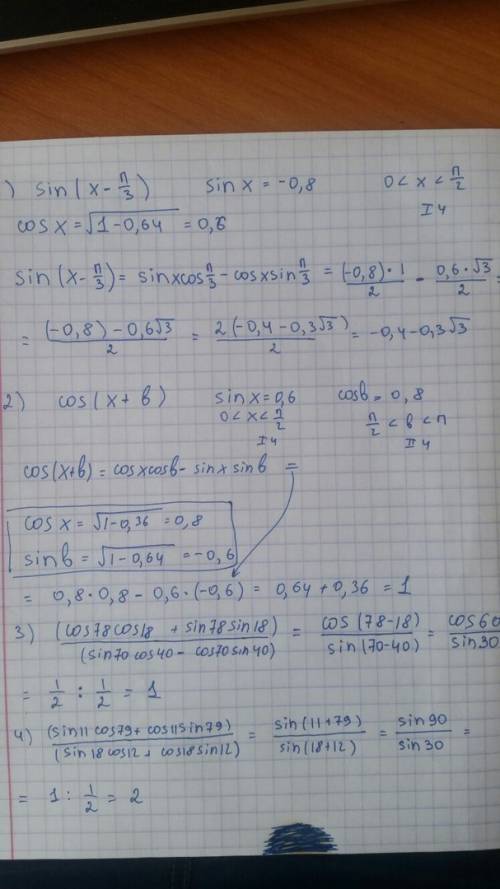 ) sin(x - п/3) sin x = -0,8 0 < x < п/2
I ч
cos x = √(1-0,64) = 0,6
sin(x - п/3) = sinx cos п/3 - cosx sin п/3 = (-0,8)·1/2 - 0,6·√3/2 =
= (-0,8) - 0,6√3/2 = 2(-0,4-0,3√3)/2 = -0,4-0,3√3
2) cos(x+в) sin x = 0,6 cosв = 0,8
0 < x < п/2 п/2 < в < п
I ч II ч
cos(x+в) = cosx cosв - sin x sin в =
cos x = √(1-0,36) = 0,8
sin в = √(1-0,64) = -0,6
= 0,8·0,8 - 0,6·(-0,6) = 0,64 + 0,36 = 1
3) (cos78 cos18 + sin78 sin18)/(sin70 cos40 - cos70 sin40) = cos(78-18)/sin(70-40) = cos60/sin30
= 1/2 : 1/2 = 1
4) (sin11 cos79 + cos11 sin79)/(sin18 cos12 + cos18 sin12) = sin(11+79)/sin(18+12) = sin90/sin30 =
= 1 : 1/2 = 2